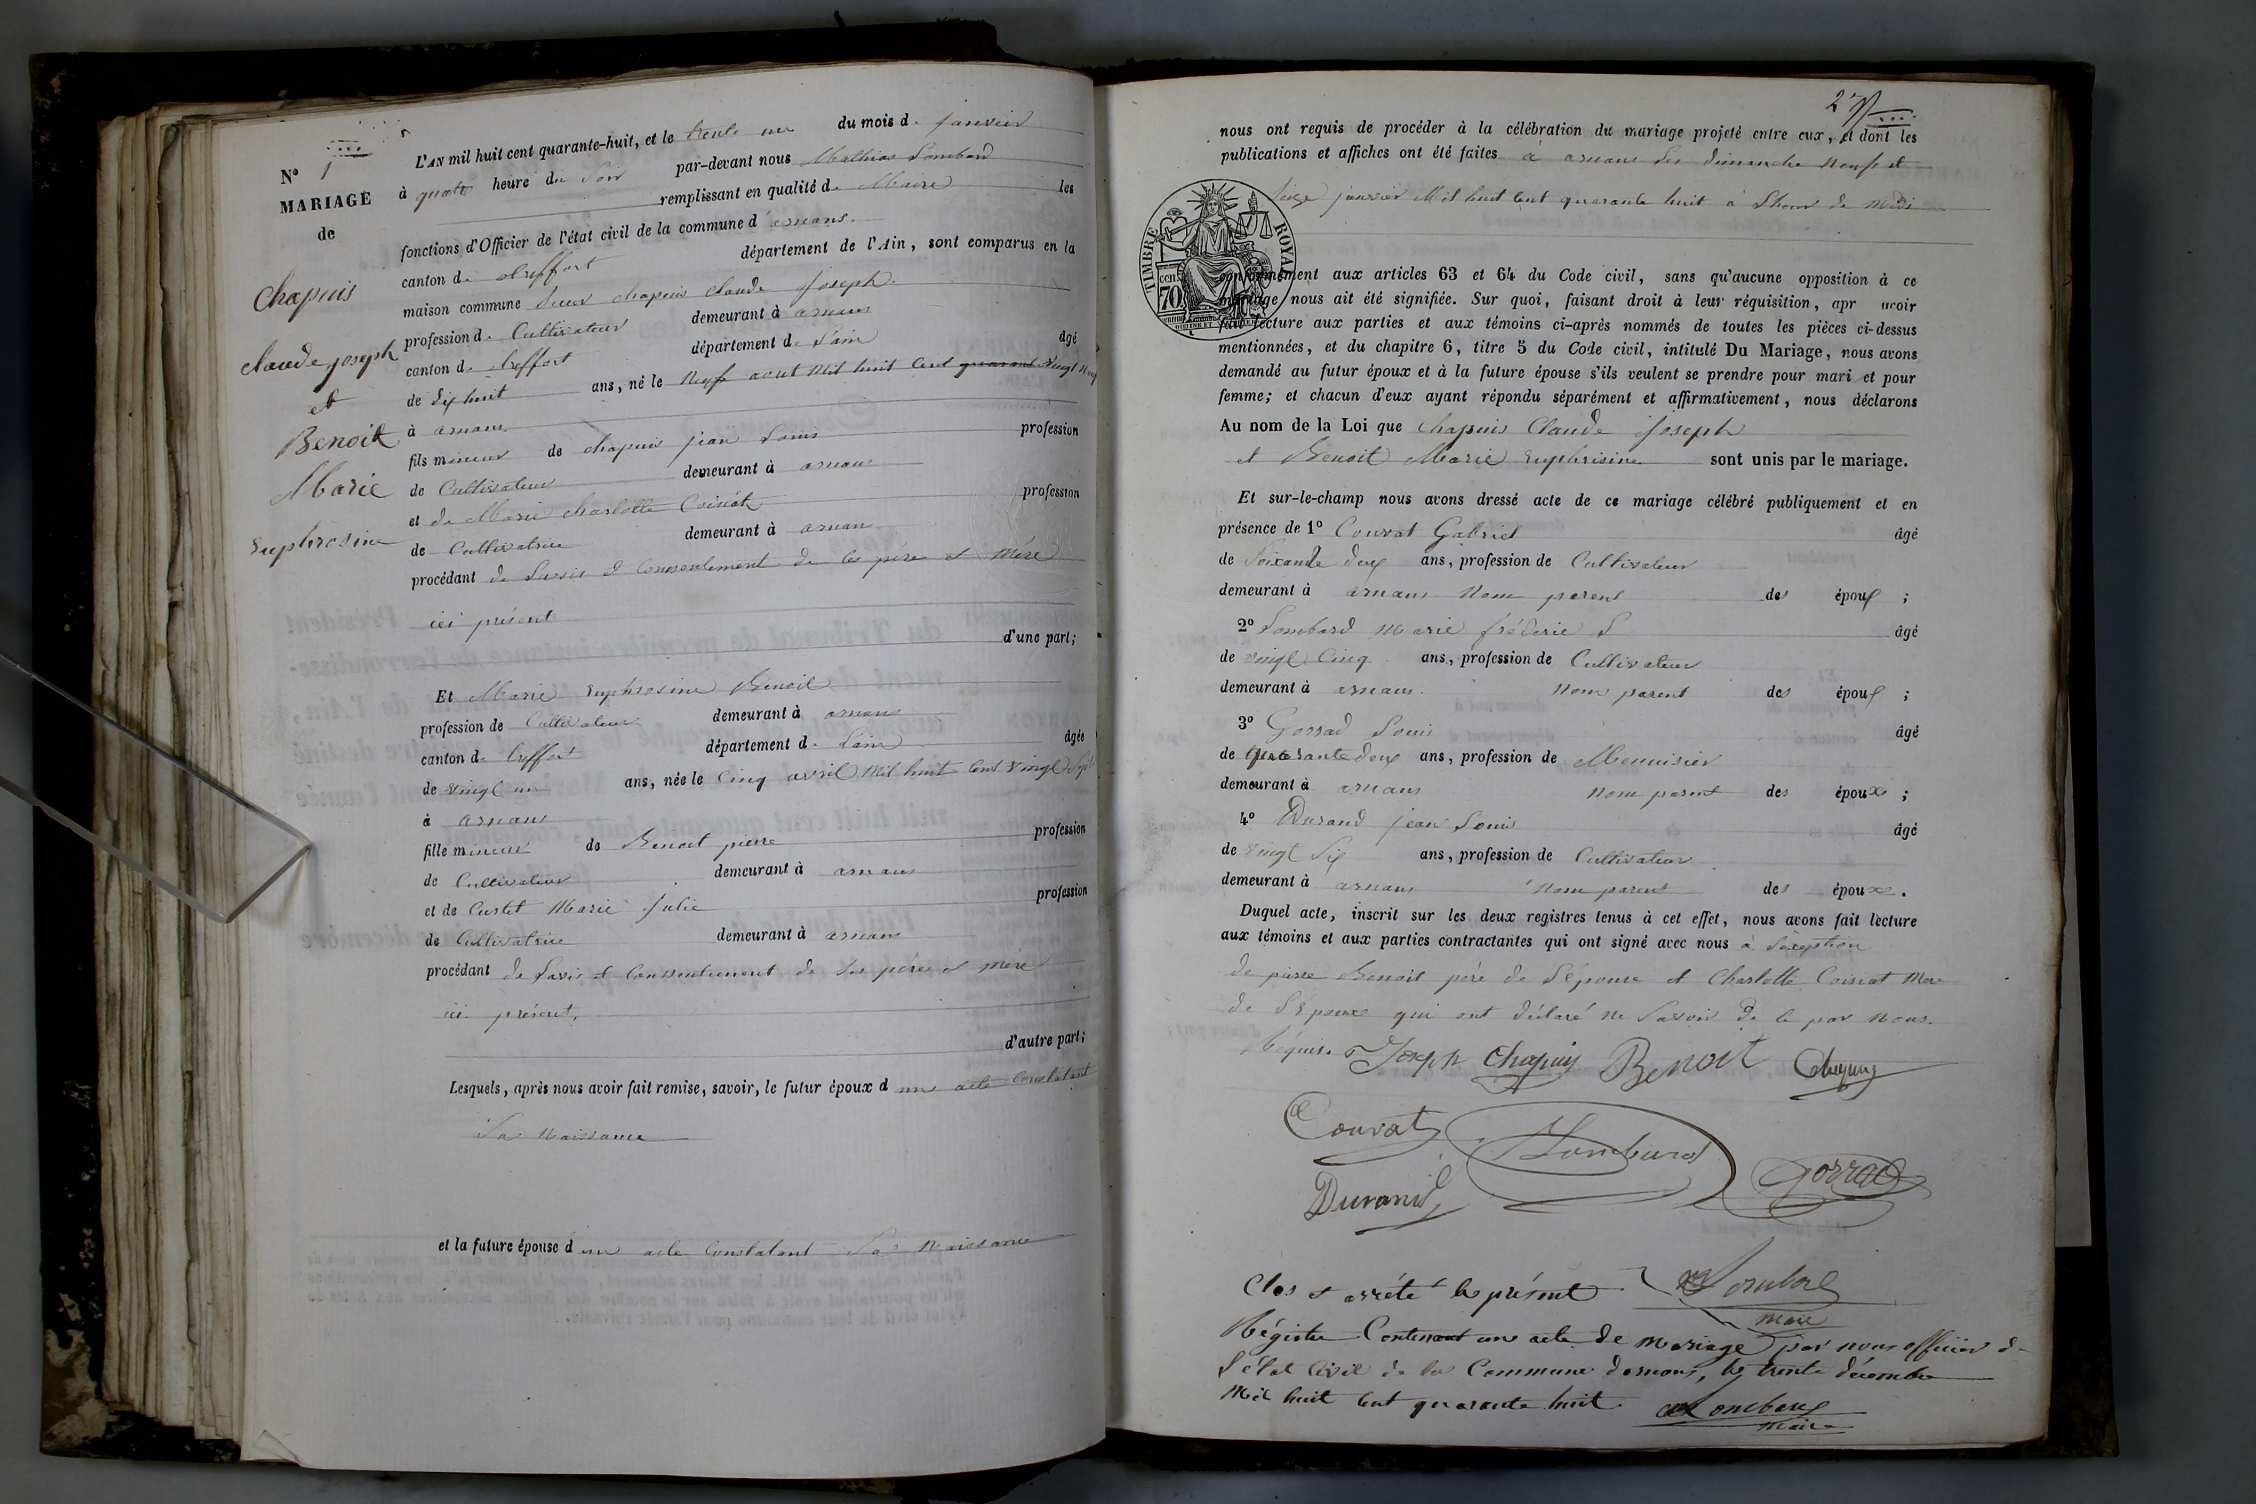 N° 1
MARIAGE
de
Chapuis
claude joseph
et
Benoit
Marie
Euphrosine
L'AN mil huit cent quarante-huit, et le trente un du mois d. janvier
à quatre heure du Soir par-devant nous Mathias Lombard
remplissant en qualité d. Maire les
fonctions d'Officier de l'état civil de la commune d'arnans.
canton d. treffort département de l'Ain, sont comparus en la
maison commune Sieur chapuis claude joseph.
profession d. Cultivateur demeurant à arnans
canton d. treffort département d. L'ain âgé
de dix huit ans, né le Neuf aout Mil huit Cent quarant Vingt Neuf
à arnans
fils mineur de chapuis jean Louis profession
de Cultivateur demeurant à arnans
et de Marie charlotte Coirat profession
de Cultivatrice demeurant à arnans
procédant de Lavis et Consentement de les père et Mère
ici présent
d'une part;
Et Marie Euphrosine Benoit
profession de Cultivateur demeurant à arnans
canton d. treffort département d. L'ain âgée
de vingt un ans, née le Cinq avril Mil huit Cent vingt Sept
à arnans
fille mineur de Benoit pierre profession
de Cultivateur demeurant à arnans
et de Curtet Marie Julie profession
de Cultivatrice demeurant à arnans
procédant de Lavis et Consentement de Ses père et mère
ici présent.
d'autre part;
Lesquels, après nous avoir fait remise, savoir, le futur époux d un acte Constatant
Sa Naissance
et la future épouse d un acte Constatant Sa Naissance
27
nous ont requis de procéder à la célébration du mariage projeté entre eux, et dont les
publications et affiches ont été faites à arnans Les dimanche Neuf et
Seize janvier Mil huit Cent quarante huit à Lheure de Midi
TIMBRE ROYAL
70 CEN
conformément aux articles 63 et 64 du Code civil, sans qu'aucune opposition à ce
mariage nous ait été signifiée. Sur quoi, faisant droit à leur réquisition, apr avoir
fait lecture aux parties et aux témoins ci-après nommés de toutes les pièces ci-dessus
mentionnées, et du chapitre 6, titre 5 du Code civil, intitulé Du Mariage, nous avons
demandé au futur époux et à la future épouse s'ils veulent se prendre pour mari et pour
femme; et chacun d'eux ayant répondu séparément et affirmativement, nous déclarons
Au nom de la Loi que Chapuis Claude Joseph
et Benoit Marie Euphrisine sont unis par le mariage.
Et sur-le-champ nous avons dressé acte de ce mariage célébré publiquement et en
présence de 1° Couvat Gabriel âgé
de Soixante deux ans, profession de Cultivateur
demeurant à arnans Non parent des époux ;
2° Lombard Marie fréderic âgé
de vingt Cinq ans, profession de Cultivateur
demeurant à arnans. Non parent des époux ;
3° Gorrad Louis âgé
de quarante deux ans, profession de Menuisier
demeurant à arnans non parent des époux ;
4° Durand jean Louis âgé
de vingt Six ans, profession de Cultivateur
demeurant à arnans Non parent des époux.
Duquel acte, inscrit sur les deux registres tenus à cet effet, nous avons fait lecture
aux témoins et aux parties contractantes qui ont signé avec nous à Léxception
de pierre Benoit père de Lépouse et Charlotte Coirat Mere
de LEpoux qui ont déclaré ne Savoir de le par Nous.
Réquis. Joseph Chapuis Benoit Chapuis
Couvat Lombard
Durand Gorrad
Lombard
Maire
Clos et arrété le présent
Régistre Contenant une acte de Mariage par nous officier de
L'état Civil de la Commune darnans, le trente décembre
Mil huit Cent quarante huit. Lombard
Maire